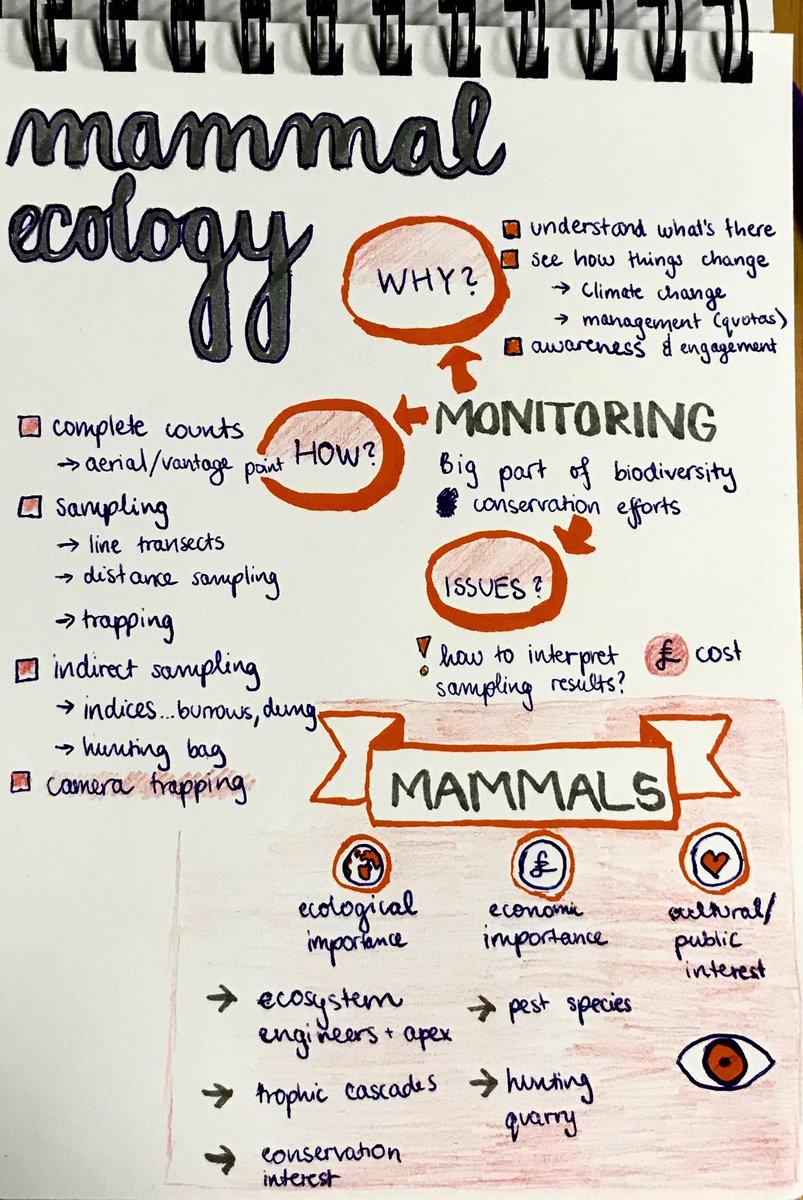 mammal
ecology
WHY?
understand what's there
see how things change
→ Climate change
→ management (quotas)
awareness & engagement
MONITORING
Big part of biodiversity
conservation efforts
HOW?
complete counts
→ aerial/vantage point
sampling
→ line transects
→ distance sampling
→ trapping
indirect sampling
→ indices...burrows, dung
→ hunting bag
camera trapping
ISSUES?
! how to interpret
sampling results?
£ cost
MAMMALS
ecological
importance
→ ecosystem
engineers + apex
→ trophic cascades
→ conservation
interest
£
economic
importance
→ pest species
→ hunting
quarry
cultural/
public
interest